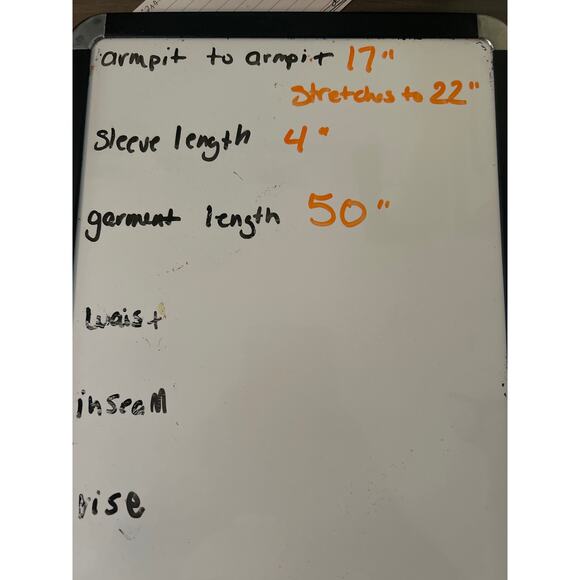 armpit to armpit 17"
stretches to 22"
sleeve length 4"
garment length 50"
waist
inseam
rise